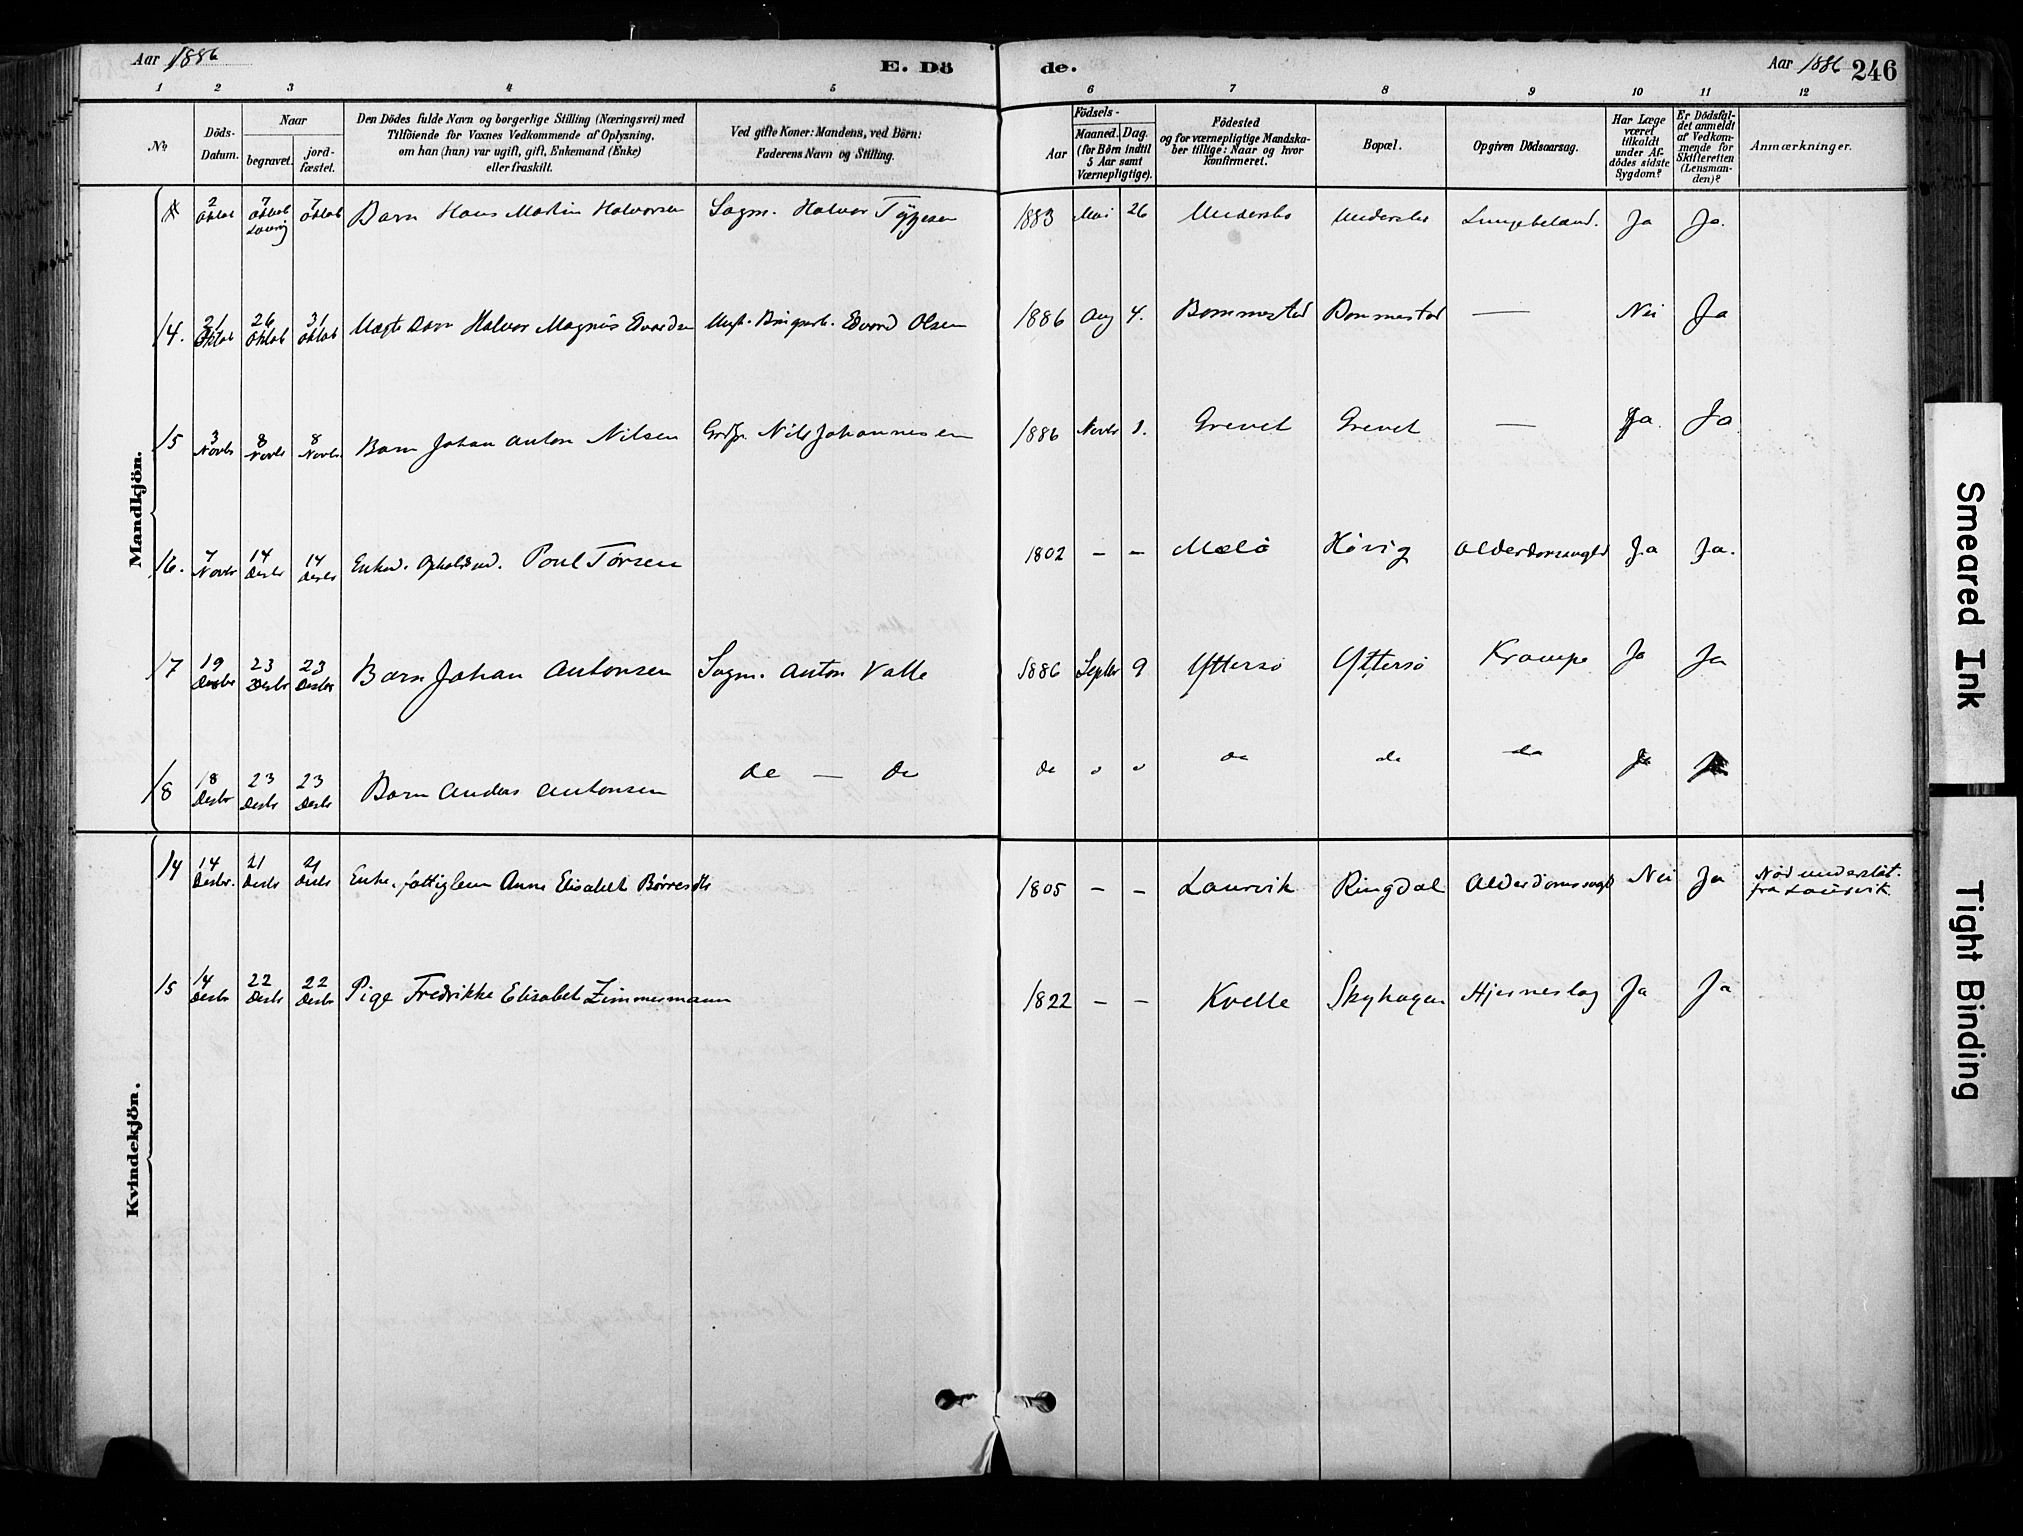 Aar 1886
E. Dö
de.
Aar 1886 246
1 2 3 4 5 6 7 8 9 10 11 12
No
Döds-
Datum.
Naar
begravet.
jord-
fæstet.
Den Dödes fulde Navn og borgerlige Stilling (Næringsvei) med
Tilföiende for Voxnes Vedkommende af Oplysning,
om han (hun) var ugift, gift, Enkemand (Enke)
eller fraskilt.
Ved gifte Koner: Mandens, ved Börn:
Faderens Navn og Stilling.
Födsels-
Aar
Maaned. Dag.
(for Börn indtil
5 Aar samt
Værnepligtige).
Födested
og for værnepligtige Mandska-
ber tillige: Naar og hvor
konfirmeret.
Bopæl.
Opgiven Dödsaarsag.
Har Læge
været
tilkaldt
under Af-
dödes sidste
Sygdom?
Er Dödsfal-
det anmeldt
af Vedkom-
mende for
Skifteretten
(Lensman-
den)?
Anmærkninger.
Mandkjön.
2 Oktob 7 Oktob 7 Oktob Barn Hans Martin Halvorsen Sagm. Halvor 1883 Mai 26 Undersbo Undersbo Ja Ja.
14. 21 Oktob 26 Oktob 31 Oktob Uægte Barn Halvor Magnus Edvardsen Ungk. Edvard Olsen 1886 Aug 4. Bommestad Bommestad — Nei Ja
15 3 Novbr 8 Novbr 8 Novbr. Barn Johan Anton Nilsen Grdb. Nils Johannesen 1886 Novbr 1. Grevet Grevet — Ja. Ja
16. 7 Novbr 14 Desbr 14 Desbr Enkem. Opholdsmd. Poul Torsen 1802 – – Mælö Hövig Alderdomssvaghd Ja Ja.
17 19 Desbr 23 Desbr 23 Desbr Barn Johan Antonsen Sagm. Anton Valle 1886 Septbr 9 Yttersö Yttersö Krampe Ja Ja
18 18 Desbr 23 Desbr 23 Desbr Barn Anders Antonsen do — do do " " do do do Ja Ja
Kvindekjön.
14 14 Desbr. 21 Desbr 21 Desbr Enke. fattiglem Anne Elisabet Börresdtr 1805 – – Laurvik Ringdal Alderdomssvaghd Nei Ja Nöd understöt.
fra Laurvik.
15 14 Desbr 22 Desbr 22 Desbr Pige Fredrikke Elisabet Zimmermann 1822 – – Kvelle Skyhagen Hjerneslag Ja Ja
Smeared Ink
Tight Binding